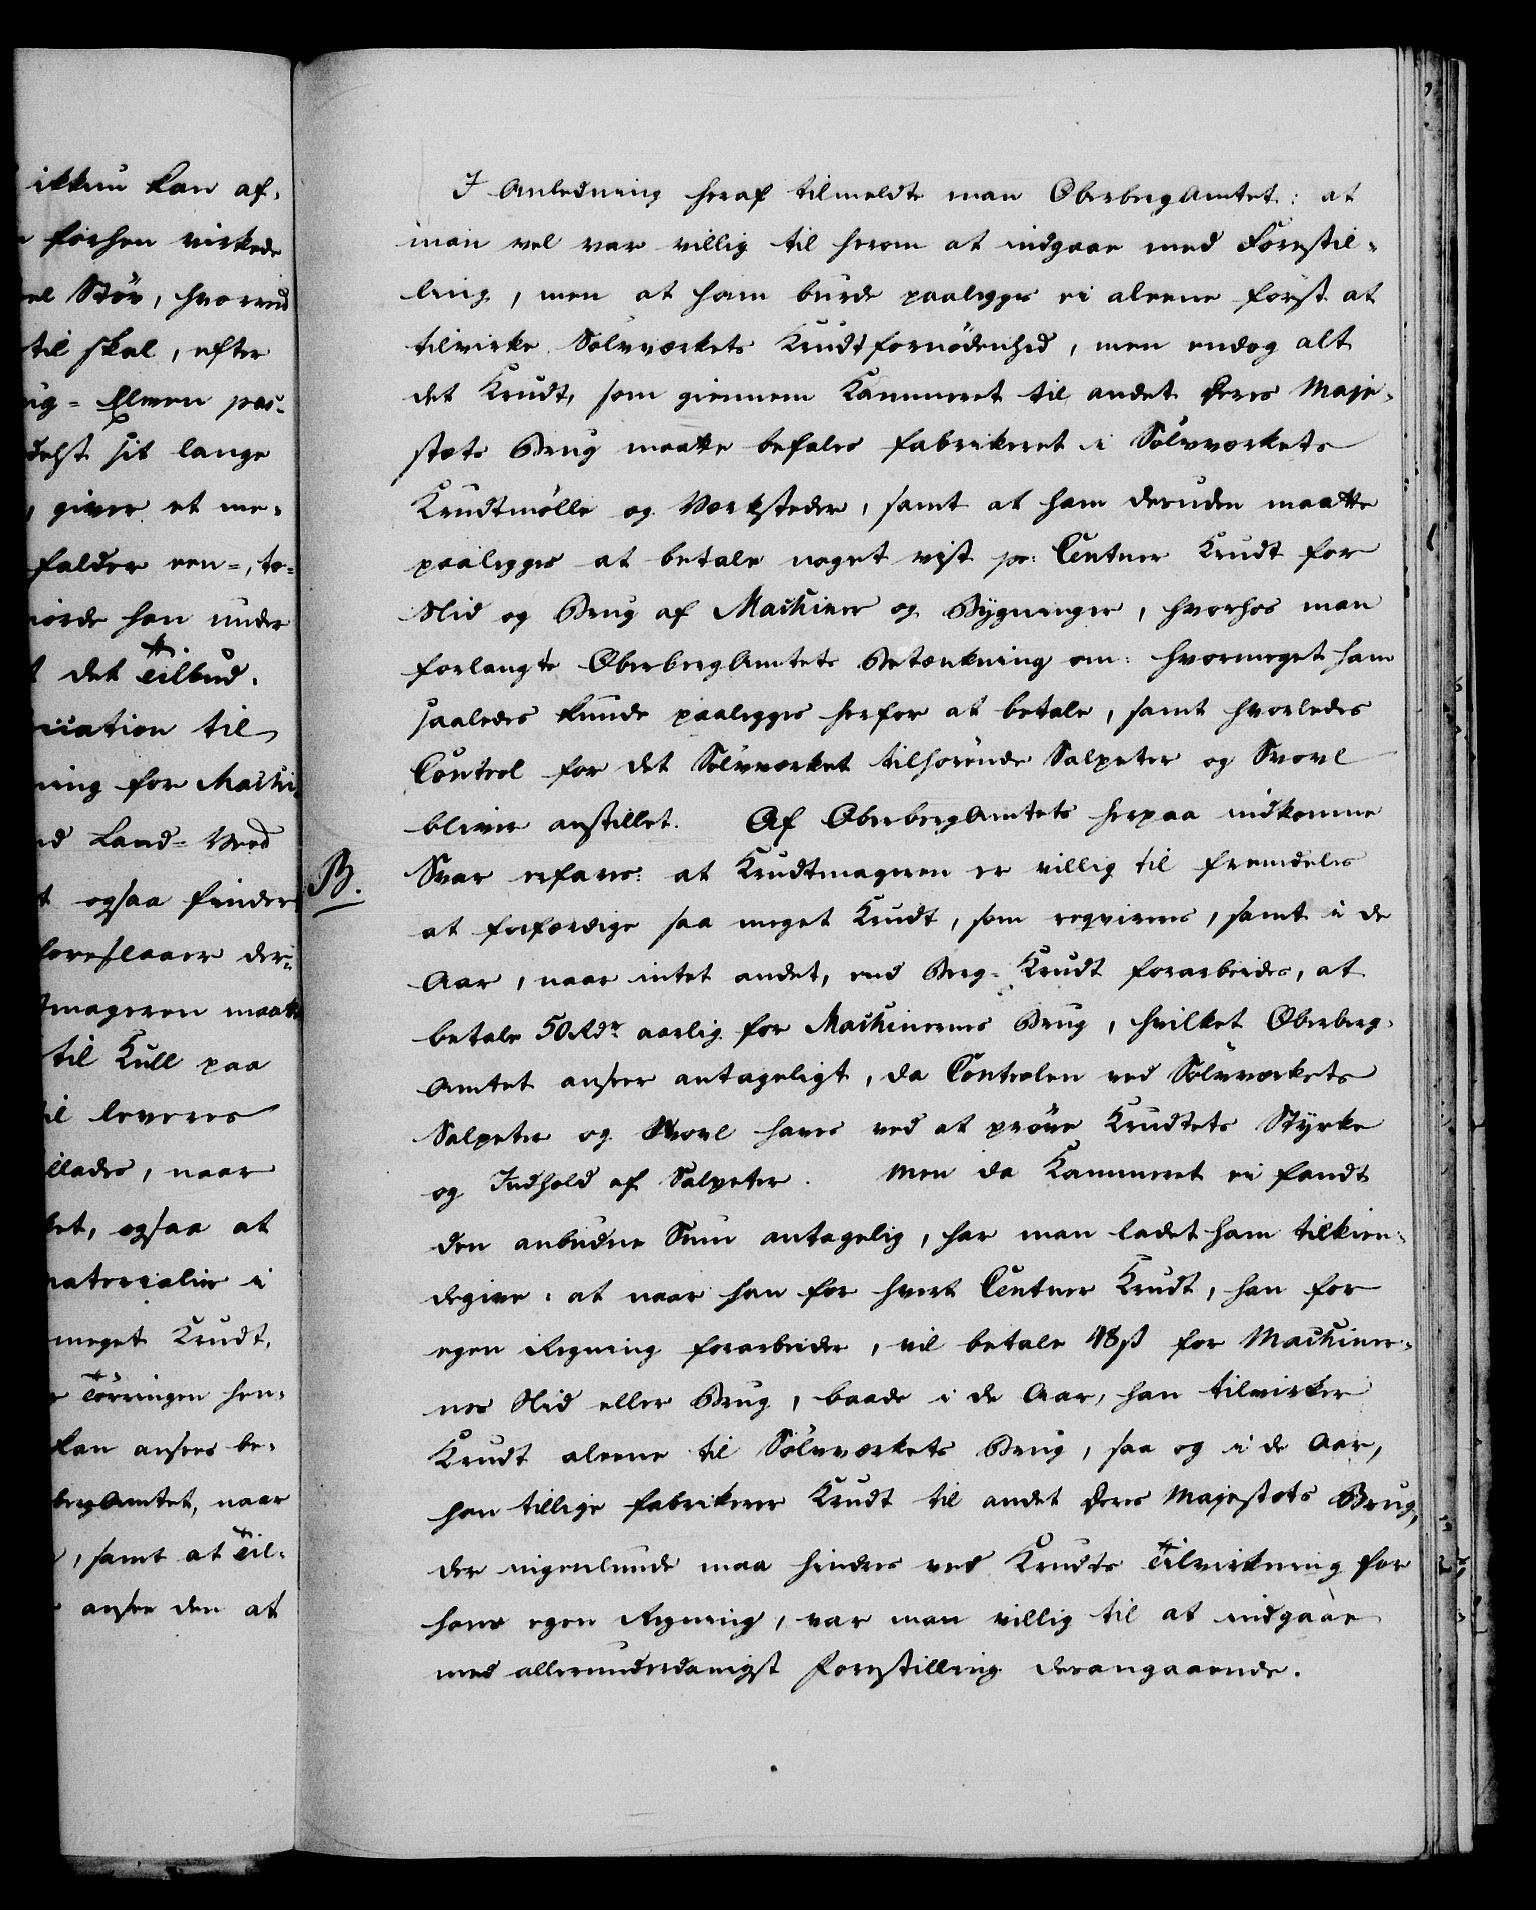 ikkun kan af-
forhen virkede
el Støv, hvorved
til skal, efter
ug- Elven pas-
delst sit lange
giver et me-
falder een-, to-
iorde han under
det Tilbud.
ication til
ning for Maski-
nd Land- Veed
t ogsaa finder
foreslaaer der-
tmageren maatte
til Kull paa
il leveres
illades, naar
ket, ogsaa at
materialier i
meget Krudt,
Törringen hen-
kan ansees be-
bergAmtet, naar
, samt at Til-
ansee den at
I Anledning heraf tilmeldte man OberbergAmtet: at
man vel var villig til herom at indgaae med Forestil-
ling, men at ham burde paalegges ei aleene först at
tilvirke Sølvværkets Krudtfornödenhed, men endog alt
det Krudt, som giennem Kammeret til andet Deres Maje-
stæts Brug maatte befales fabrikeret i Sölvværkets
Krudtmölle og Værksteder, samt at ham desuden maatte
paalegges at betale noget vist pr: Centner Krudt for
Slid og Brug af Machiner og Bygninger, hvorhos man
forlangte OberbergAmtets Betænkning om: hvormeget ham
saaledes kunde paalegges herfor at betale, samt hvorledes
Control for det Sölvværket tilhörende Salpeter og Svovl
bliver anstillet. Af OberbergAmtets herpaa indkomne
B.
Svar erfares: at Krudtmageren er villig til fremdeles
at forfærdige saa meget Krudt, som reqvireres, samt i de
Aar, naar intet andet, end Berg- Krudt forarbeides, at
betale 50 Rdr aarlig for Machinernes Brug, hvilket Oberberg-
Amtet anseer antageligt, da Controlen ved Sölvværkets
Salpeter og Svovl haves ved at pröve Krudtets Styrke
og Indhold af Salpeter. Men da Kammeret ei fandt
den anbudne Sum antagelig, har man ladet ham tilkien-
degive: at naar han for hvert Centner Krudt, han for
egen Regning forarbeider, vil betale 48 ß for Machiner-
nes Slid eller Brug, baade i de Aar, han tilvirker
Krudt aleene til Sölvværkets Brug, saa og i de Aar,
han tillige fabrikerer Krudt til andet Deres Majestæts Brug,
der ingenlunde maa hindres ved Krudts Tilvirkning for
hans egen Regning, var man villig til at indgaae
med allerunderdanigst Forestilling desangaaende.